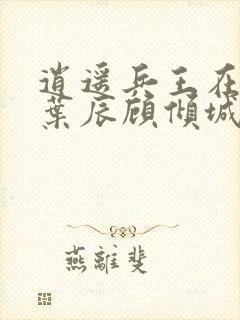 逍遥兵王在
葉辰顧傾城
燕離斐